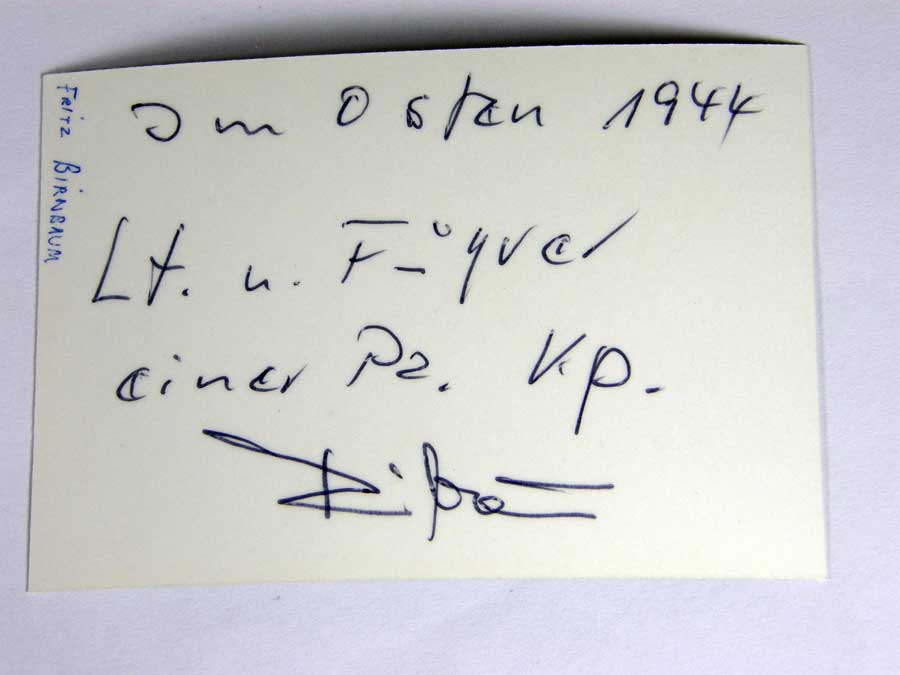 Im Osten 1944
Lt. u. Führer
einer Pz. Kp.
FRITZ BIRNBAUM